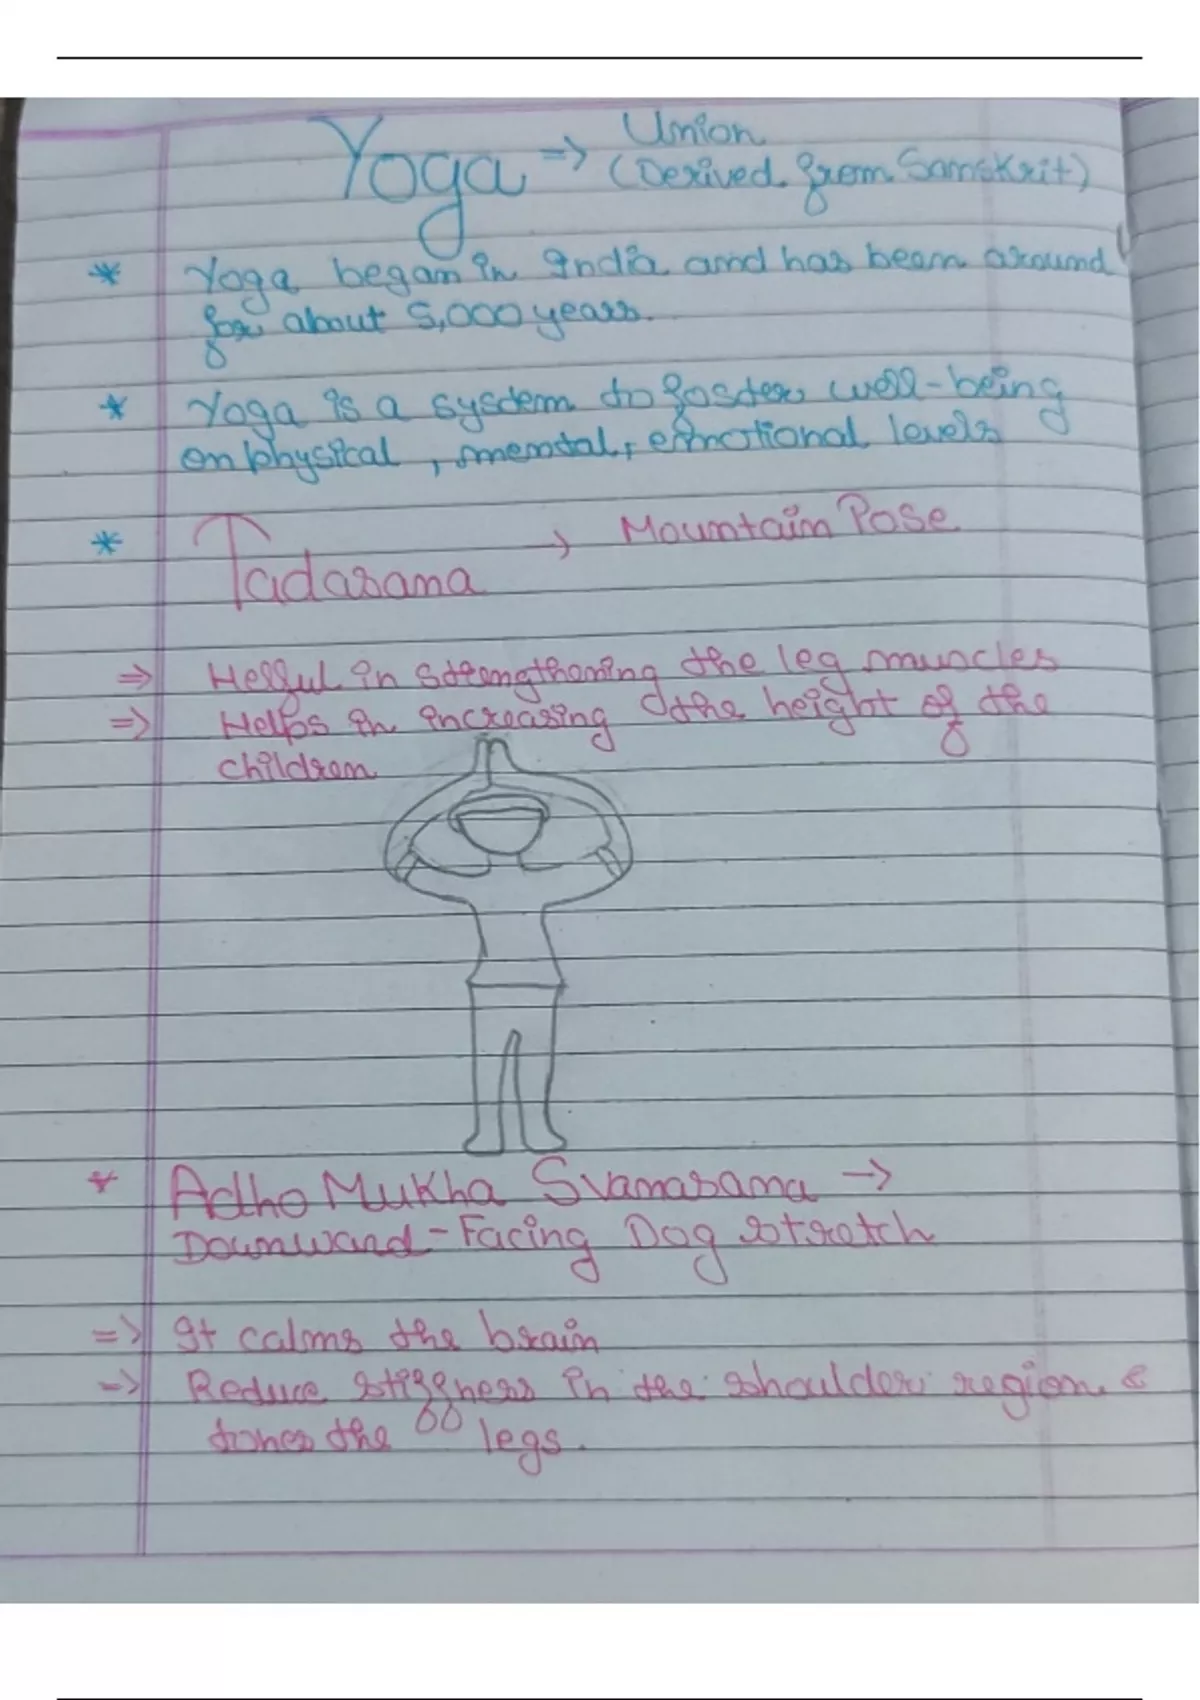 Yoga => Union
(Derived from Samskrit)
* Yoga began in India and has been around
for about 5,000 years.
* Yoga is a system to foster well-being
on physical, mental, emotional levels
* Tadasana → Mountain Pose
=> Helpful in strengthening the leg muscles
=> Helps in increasing the height of the
children
* Adho Mukha Svanasana →
Downward-Facing Dog stretch
=> It calms the brain
=> Reduce stiffness in the shoulder region &
tones the legs.